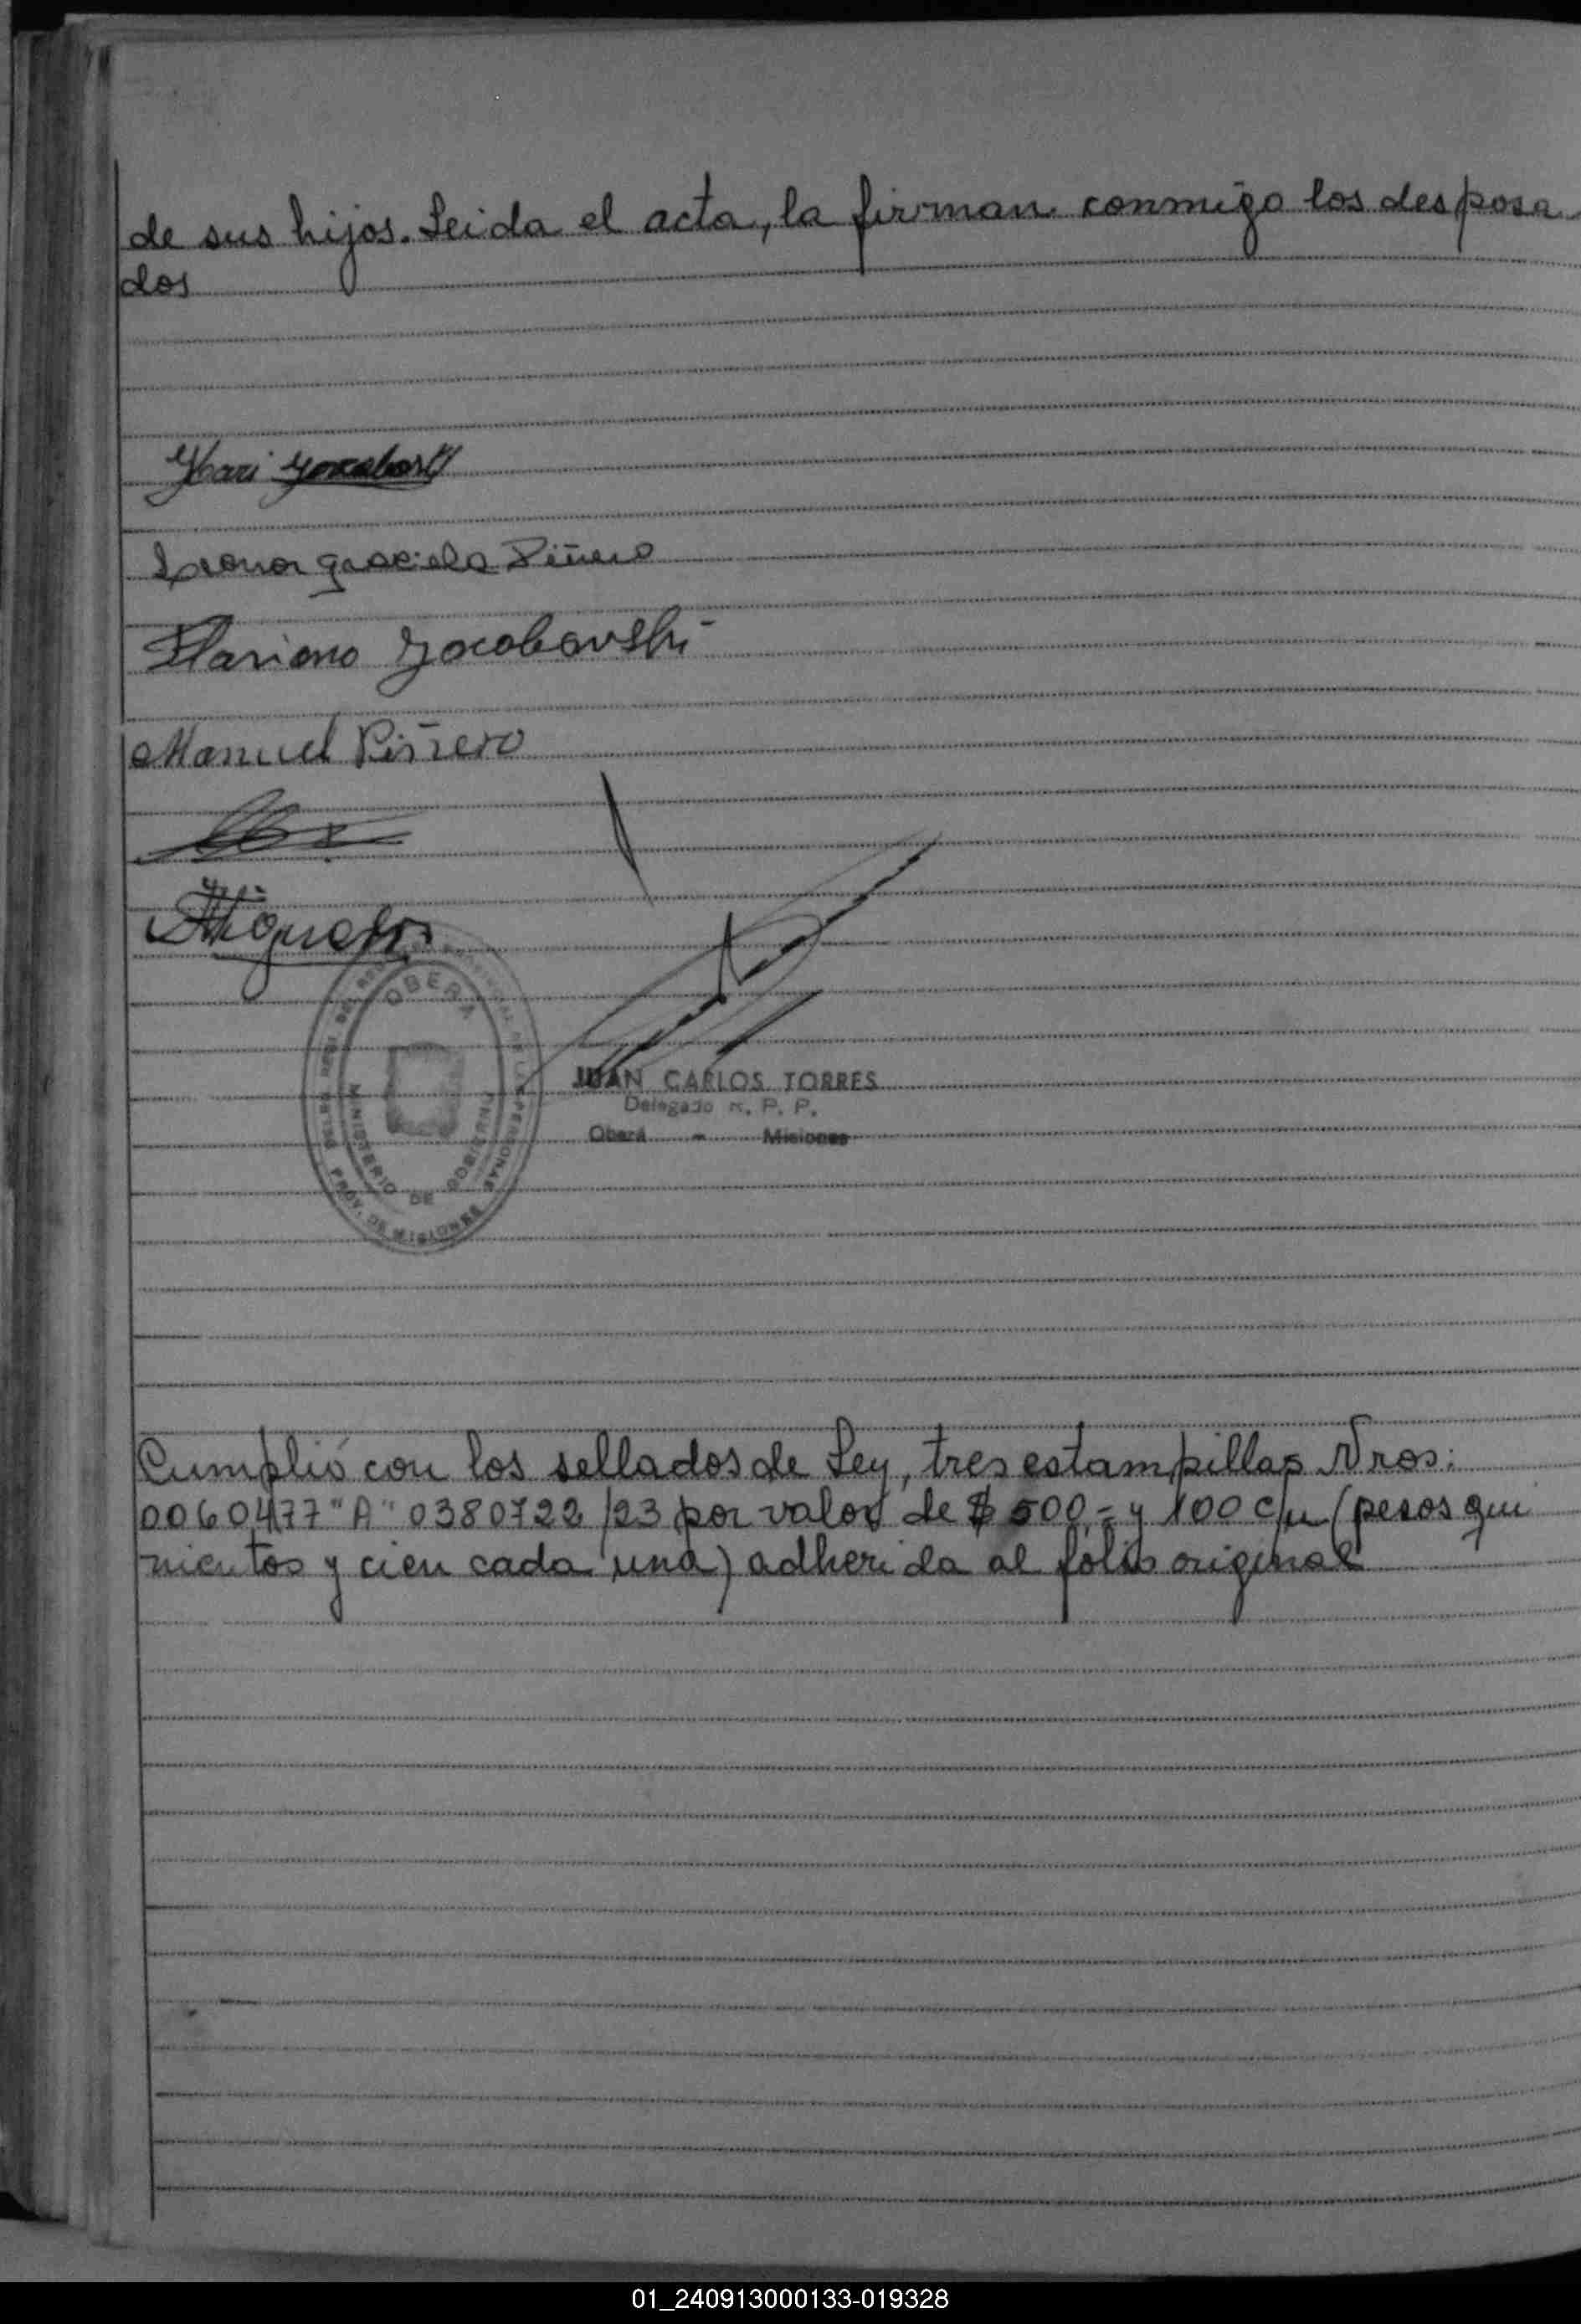 de sus hijos. Leida el acta, la firman conmigo los desposa
dos
Leonor Graciela Piñero
Mariano Jacobovski
Manuel Piñero
OBERA
MINISTERIO DE GOBIERNO
PROV. DE MISIONES
JUAN CARLOS TORRES
Delegado R. P. P.
Oberá - Misiones
Cumplió con los sellados de Ley, tres estampillas Nros:
0060477 "A" 0380722/23 por valor de $ 500,= y 100 c/u (pesos qui
nientos y cien cada una) adherida al folio original
01_240913000133-019328